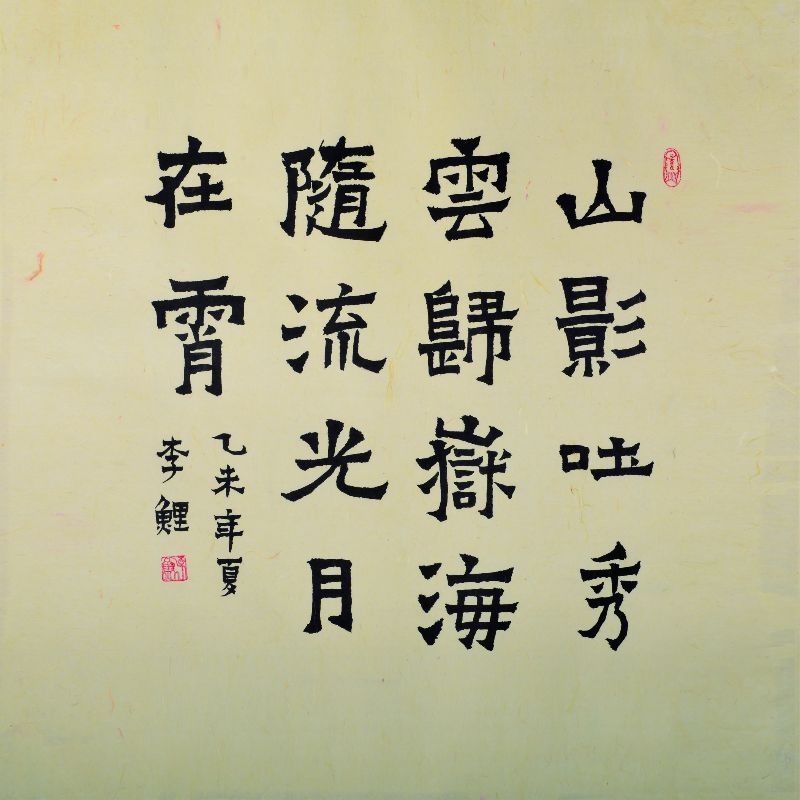 山影吐秀
雲歸嶽海
隨流光月
在霄
乙未年夏
李鯉